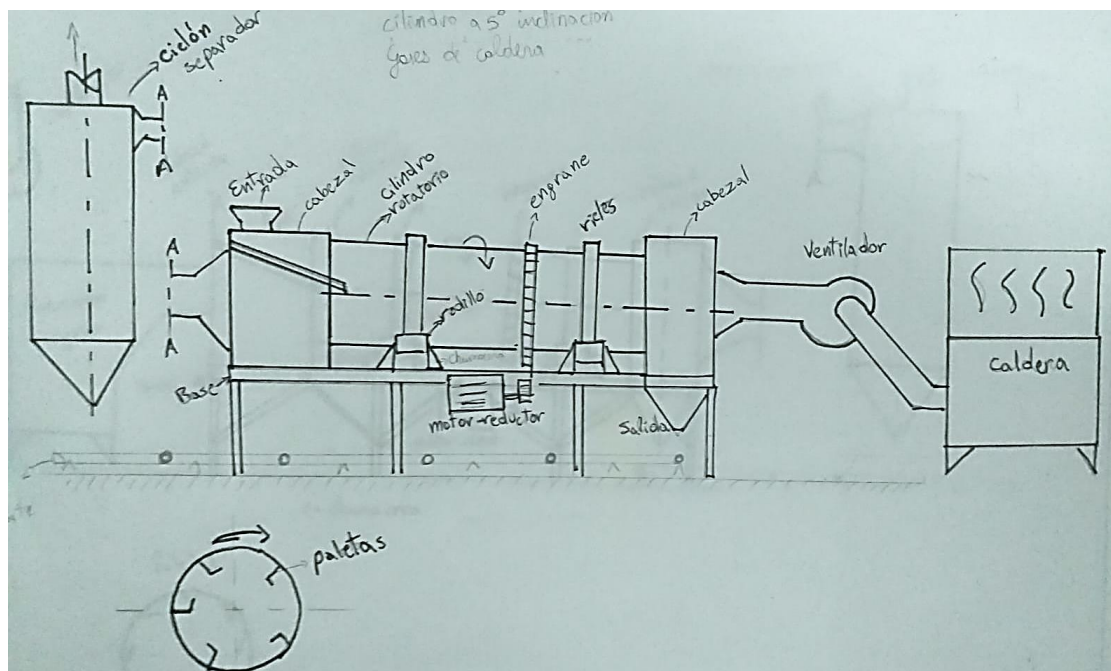 cilindro a 5° inclinacion
Gases de caldera
ciclón
separador
A
A
Entrada
cabezal
cilindro
rotatorio
engrane
rieles
cabezal
ventilador
A
A
rodillo
chumacera
caldera
Base
motor-reductor
Salida
paletas